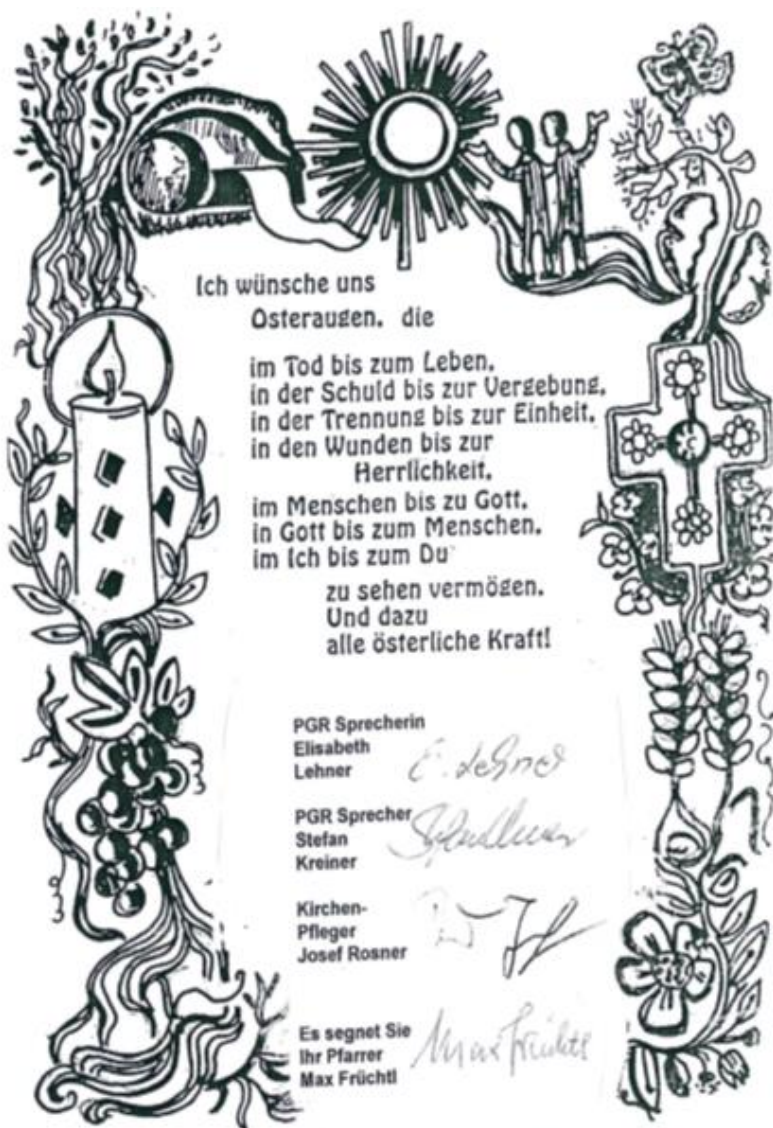 Ich wünsche uns
Osteraugen, die
im Tod bis zum Leben,
in der Schuld bis zur Vergebung,
in der Trennung bis zur Einheit,
in den Wunden bis zur
Herrlichkeit,
im Menschen bis zu Gott,
in Gott bis zum Menschen,
im Ich bis zum Du
zu sehen vermögen.
Und dazu
alle österliche Kraft!
PGR Sprecherin
Elisabeth
Lehner E. Lehner
PGR Sprecher
Stefan
Kreiner
Kirchen-
Pfleger
Josef Rosner
Es segnet Sie
Ihr Pfarrer Max Früchtl
Max Früchtl